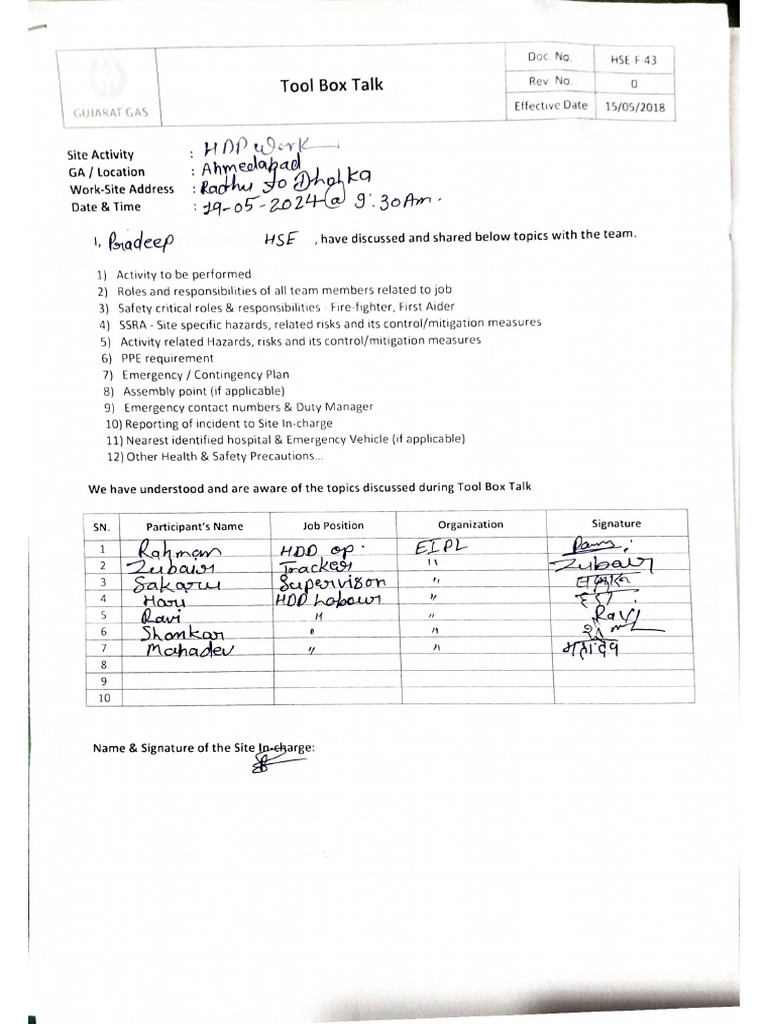 GUJARAT GAS
Tool Box Talk
Doc No. HSE F 43
Rev No. 0
Effective Date 15/05/2018
Site Activity : HDD Work
GA / Location : Ahmedabad
Work-Site Address : Radhu to Dholka
Date & Time : 29-05-2024 @ 9:30Am.
I, Pradeep HSE , have discussed and shared below topics with the team.
1) Activity to be performed
2) Roles and responsibilities of all team members related to job
3) Safety critical roles & responsibilities - Fire-fighter, First Aider
4) SSRA - Site specific hazards, related risks and its control/mitigation measures
5) Activity related Hazards, risks and its control/mitigation measures
6) PPE requirement
7) Emergency / Contingency Plan
8) Assembly point (if applicable)
9) Emergency contact numbers & Duty Manager
10) Reporting of incident to Site In-charge
11) Nearest identified hospital & Emergency Vehicle (if applicable)
12) Other Health & Safety Precautions...
We have understood and are aware of the topics discussed during Tool Box Talk
SN. Participant's Name Job Position Organization Signature
1 Rahman HDD op. EIPL
2 Zubair Tracker " Zubair
3 Sakaru Supervison "
4 Hari HDD Labour "
5 Ravi " " Ravi
6 Shankar " "
7 Mahadev " " महादेव
8
9
10
Name & Signature of the Site In-charge: